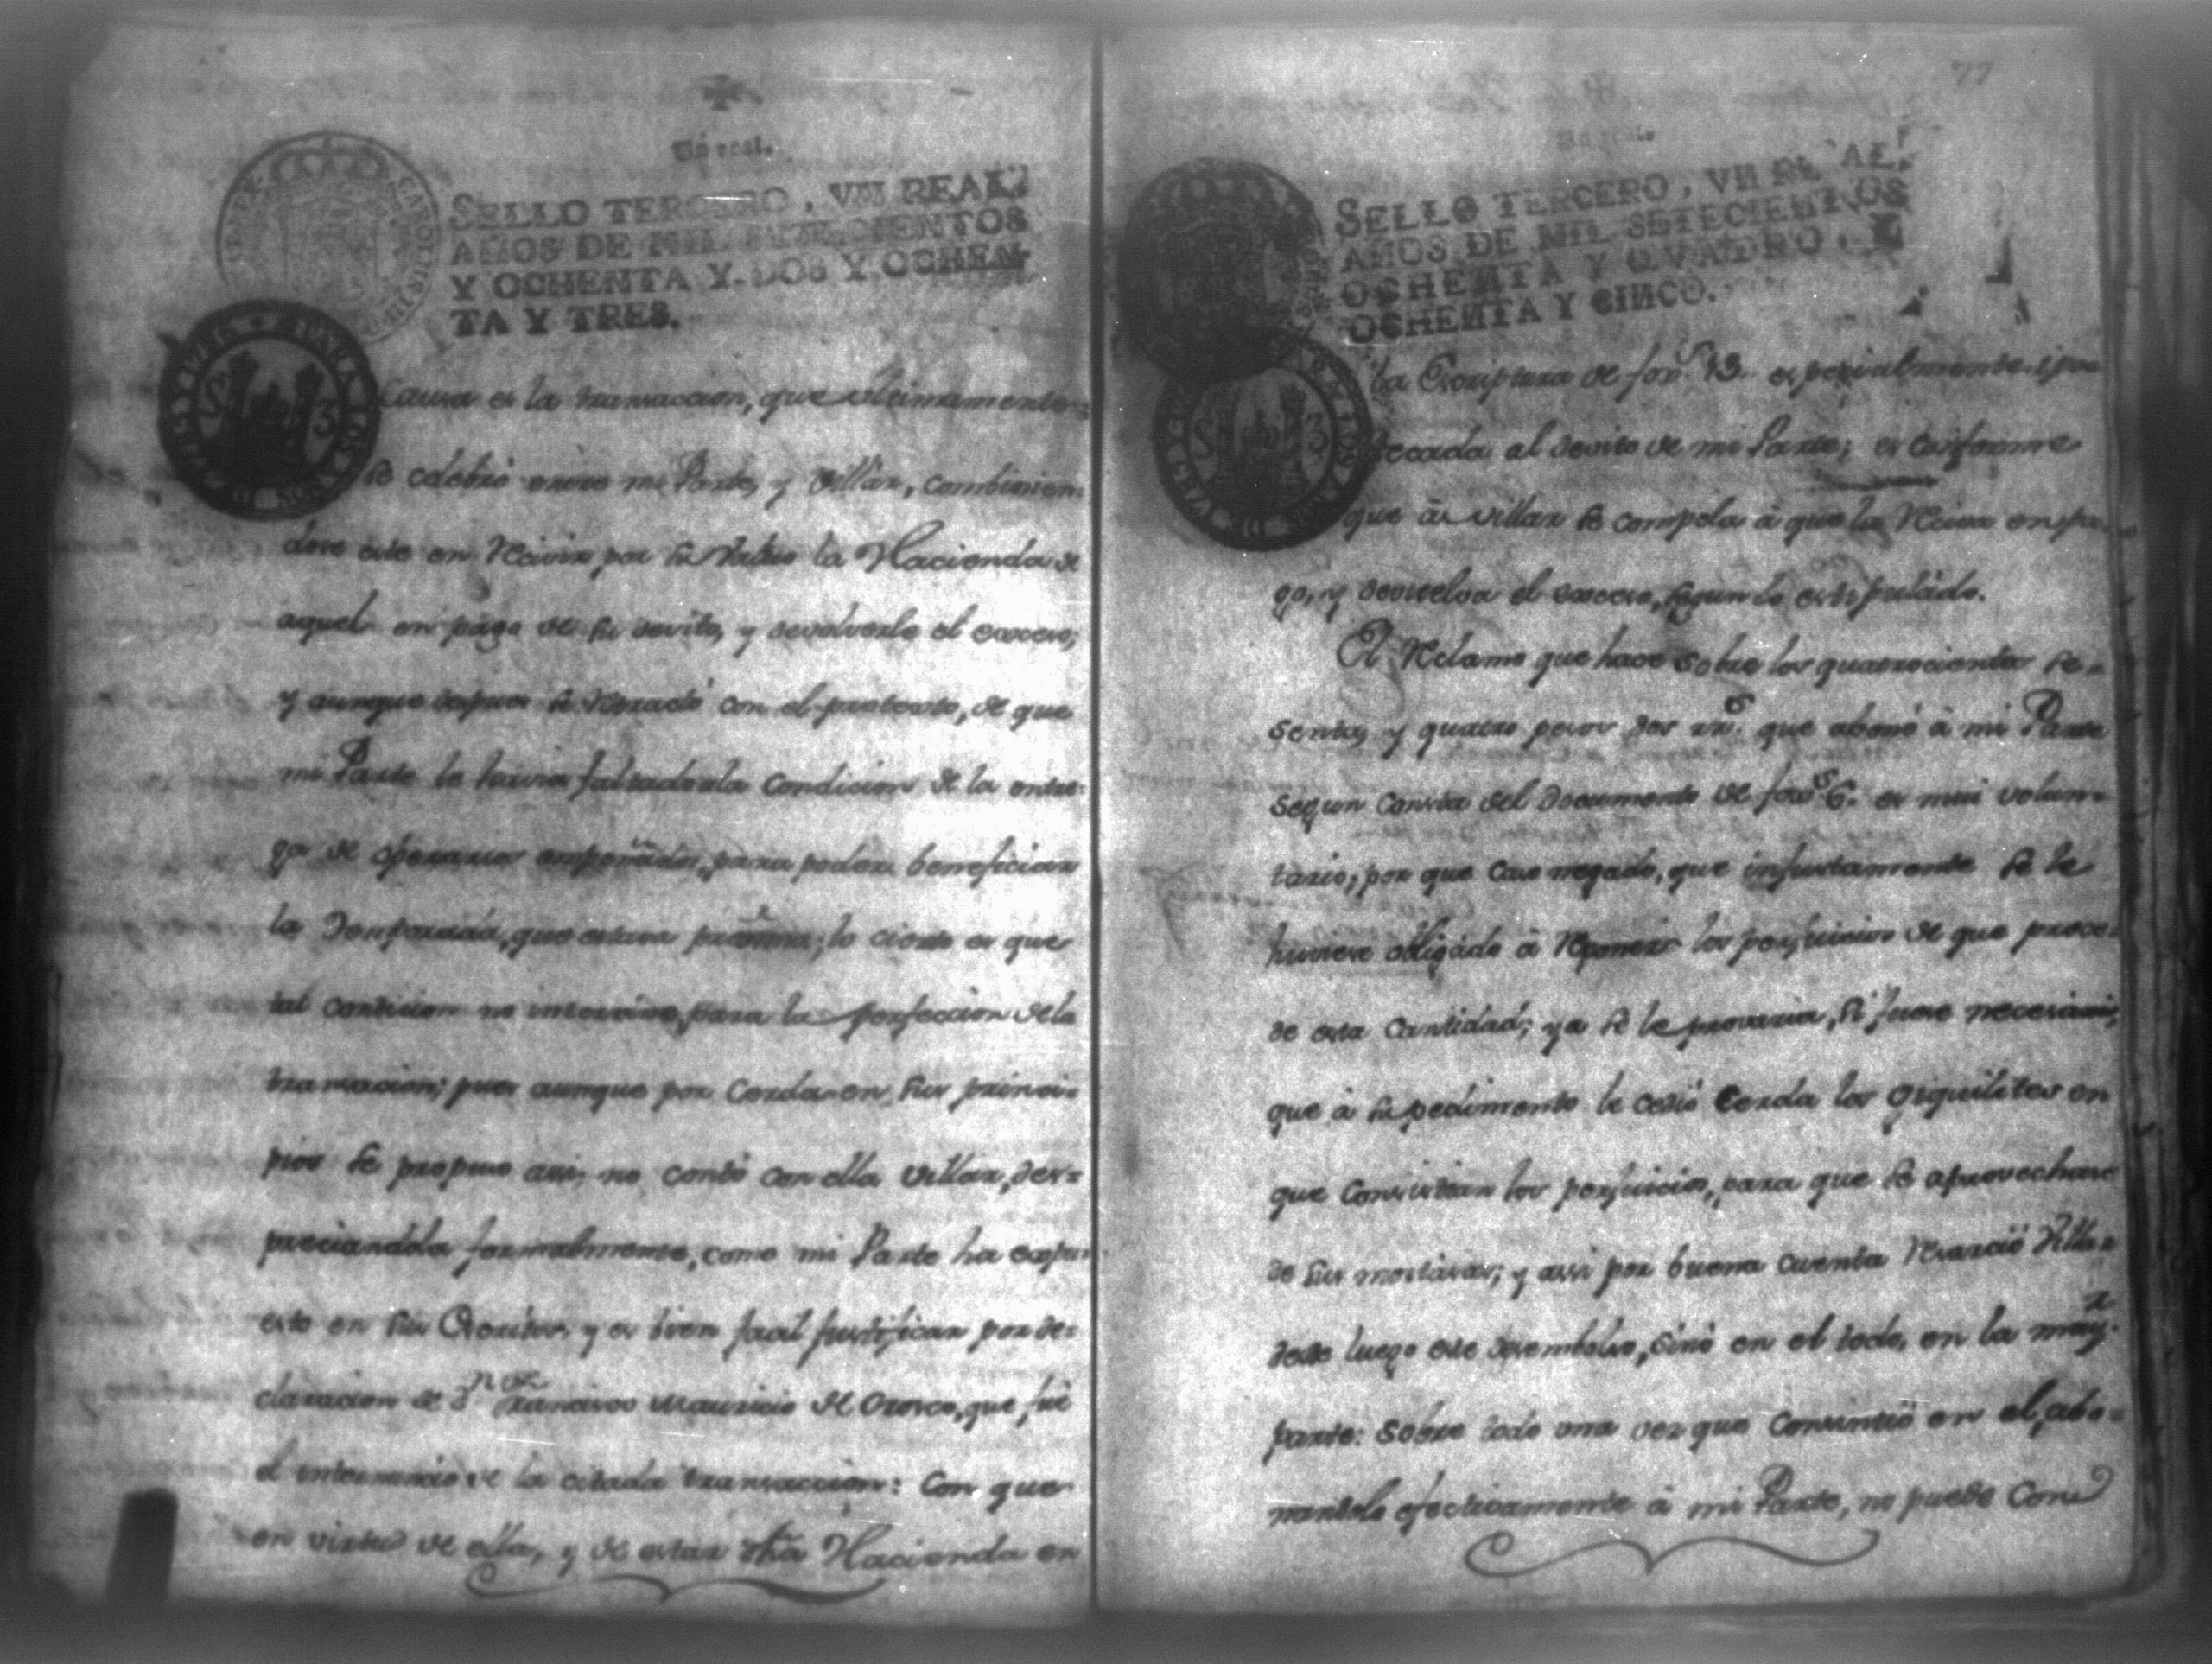 Un real.
SELLO TERCERO, VN REAL,
AÑOS DE MIL SETECIENTOS
Y OCHENTA Y DOS Y OCHEN-
TA Y TRES.
causa es la transaccion, que ultimamente
se celebró entre mi Parte, y Villar, combinien-
dose este en Recivir por su Valuo la Hacienda de
aquel en pago de su devito, y devolverle el exceso;
y aunque despues se Retractó con el pretexto, de que
mi Parte le havia faltado a la condicion de la entre-
ga de operarios empeñados, para poder beneficiar
la Temporada, que estava proxima; lo cierto es que
tal condicion no intervino, para la perfeccion de la
transaccion; pues aunque por Cerda en sus princi-
pios se propuso assi, no contó con ella Villar, des-
preciandola formalmente, como mi Parte ha expu-
esto en sus Escritos, y es bien facil justificar por de-
claracion de Dn Francisco Mauricio de Orosco, que fue
el intermedio de la citada transaccion: Con que
en virtud de ella, y de estar dha Hacienda en
77
Un real.
SELLO TERCERO, VN REAL,
AÑOS DE MIL SETECIENTOS
OCHENTA Y QVATRO, Y
OCHENTA Y CINCO.
la Escriptura de fox.s 13. especialmente ipo-
tecada al devito de mi Parte; es conforme
que à Villar se compela à que la Reciva en pa-
go, y devuelva el exceso, segun lo estipulado.
El Reclamo que hace sobre los quatrocientos se-
senta, y quatro pesos dos rr.s que abonó à mi Parte
segun consta del Documento de fox.s 6. es mui volun-
tario; por que caso negado, que injustamente se le
huviese obligado à Reponer los perjuicios de que proce-
de esta cantidad; ya se le provaria, si fuese necesario,
que à su pedimento le cedió Cerda los giquilites en
que consistian los perjuicios, para que se aprovechase
de sus mostasas; y assi por buena cuenta Resarció Villar
desde luego este desembolso, sinó en el todo, en la may.r
parte: Sobre todo una vez que consintió en el, abo-
nandolo efectivamente à mi Parte, no puede con